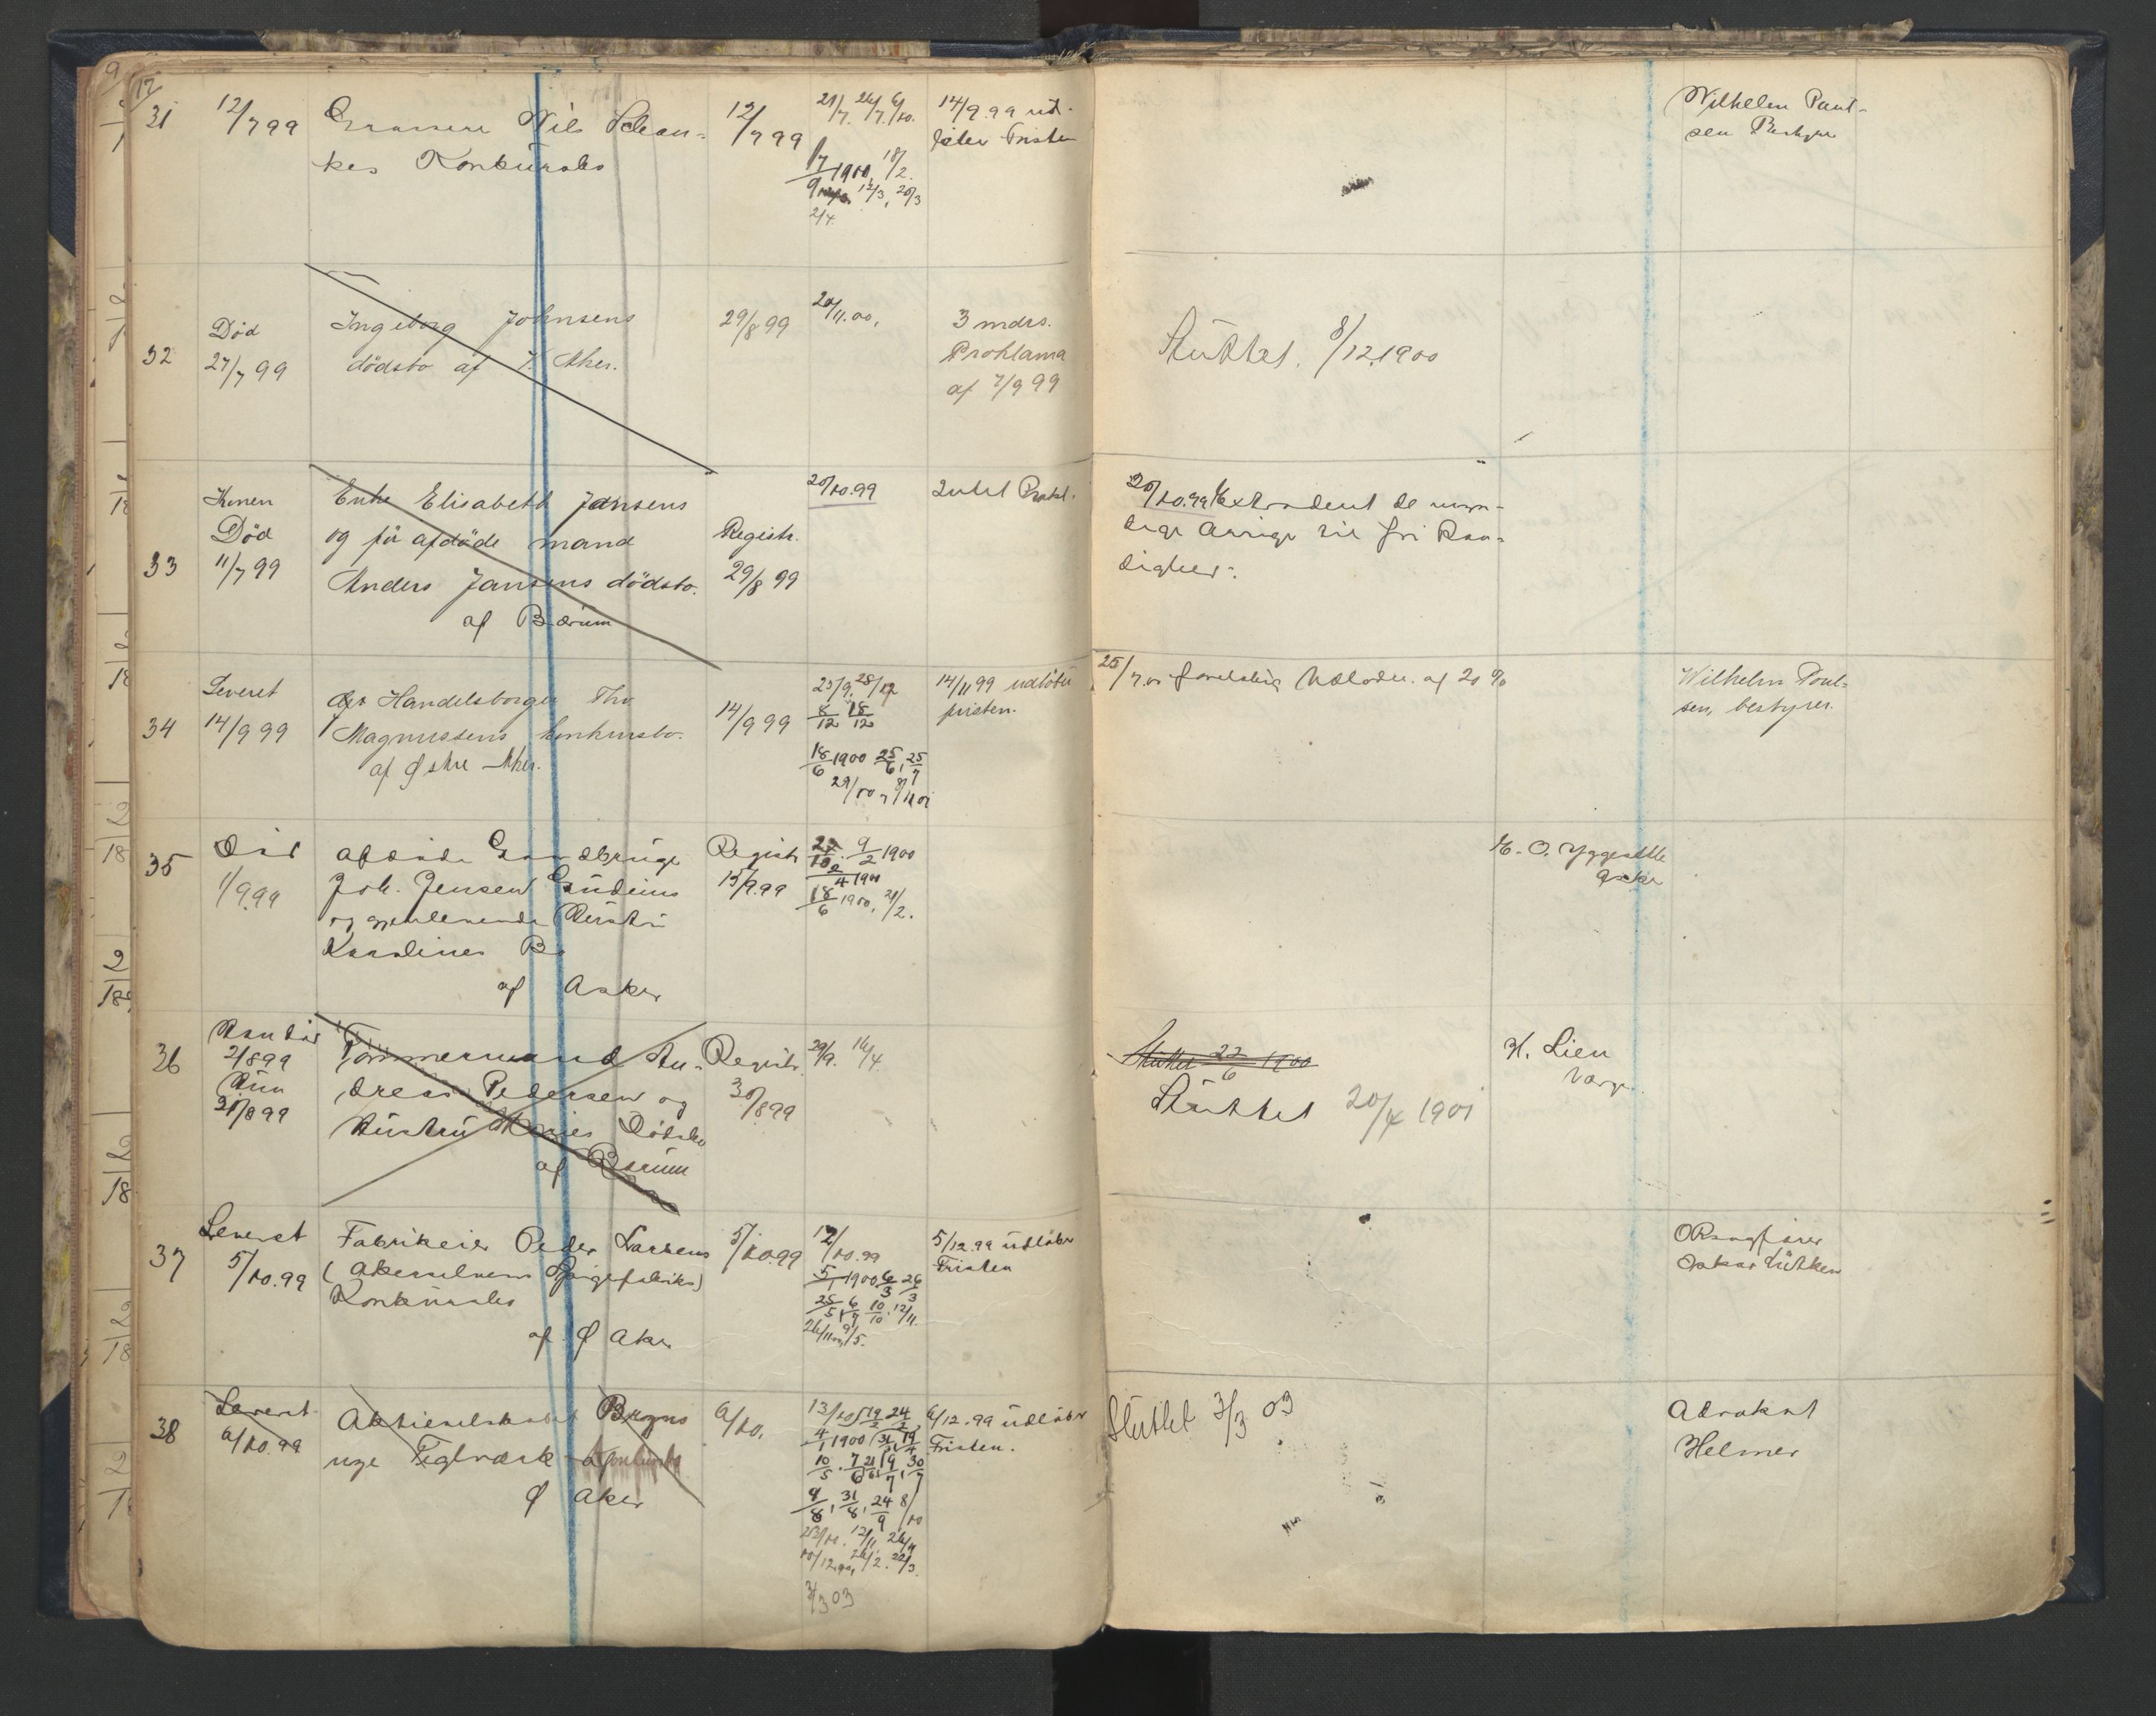 12
31
12/7 99
Grosserer Nils Schan-
kes Konkursbo
12/7 99
21/7. 26/7. 6/10.
1900, 18/2.
12/3, 20/3
2/4.
14/9.99 ud-
løber Fristen
Wilhelm Paul-
sen Bestyrer
32
Död
27/7 99
Ingeborg Johnsens
dödsbo af V. Aker.
29/8 99
20/11.00,
3 mdrs.
Proklama
af 7/9 99
Sluttet. 8/12.1900
33
Konen
Död
11/7 99
Enke Elisabeth Jansens
og før afdöde mand
Anders Jansens dödsbo.
af Bærum
Registr.
29/8 99
20/10.99
Intet Prokl.
20/10.99 Extraderet de myn-
dige Arvinger til fri Raa-
dighed.
34
Leveret
14/9 99
Handelsborger Thv.
Magnussens konkursbo.
af Østre Aker.
14/9 99
25/9. 28/12
8/12 18/12
18/6 1900 25/6, 25/7
29/10, 8/11 01
14/11 99 udlöber
fristen.
25/7.01 foreløbig Udlodn. af 20 %
Wilhelm Poul-
sen, bestyrer.
35
Död
1/9.99
Afdöde Gaardbruger
Joh. Jensen
og gjenlevende Hustru
Karolines Bo
af Asker
Registr
15/9.99
9/2 1900
4 1900
18/6 1900, 21/2.
Asker
36
Manden
2/8 99
Kone
21/8 99
Tømmermand An-
dreas Pedersen og
Hustru Maries Dödsbo
af Bærum
Registr.
30/8 99
29/9. 16/4.
Sluttet 22/6 1900
Sluttet 20/4 1901
H. Lien
Værge
37
Leveret
5/10.99
Fabrikeier Peder Larsens
(Akerselvens Spigerfabriks)
Konkursbo
af Ø Aker
5/10.99
12/10.99
5/1 1900 6/3 26/3
25/5, 6/9 10/10. 12/11.
26/11 00, 9/5.
5/12.99 udløber
Fristen
Overretssagfører
Oskar Lütken
38
Leveret
6/10.99
Aktieselskabet Bryns
nye Teglværk
Ø Aker
6/10.
13/10, 19/2 24/2
4/1 1900 31/3 19/4
10/5. 7/6 21/6 19/7, 30/7
9/8, 31/8, 24/9 8/10
23/10. 12/11. 26/11
10/12.00, 26/2. 22/3.
3/3 03
6/12.99 udløber
Fristen.
Sluttet 3/3 03
Advokat
Helmer